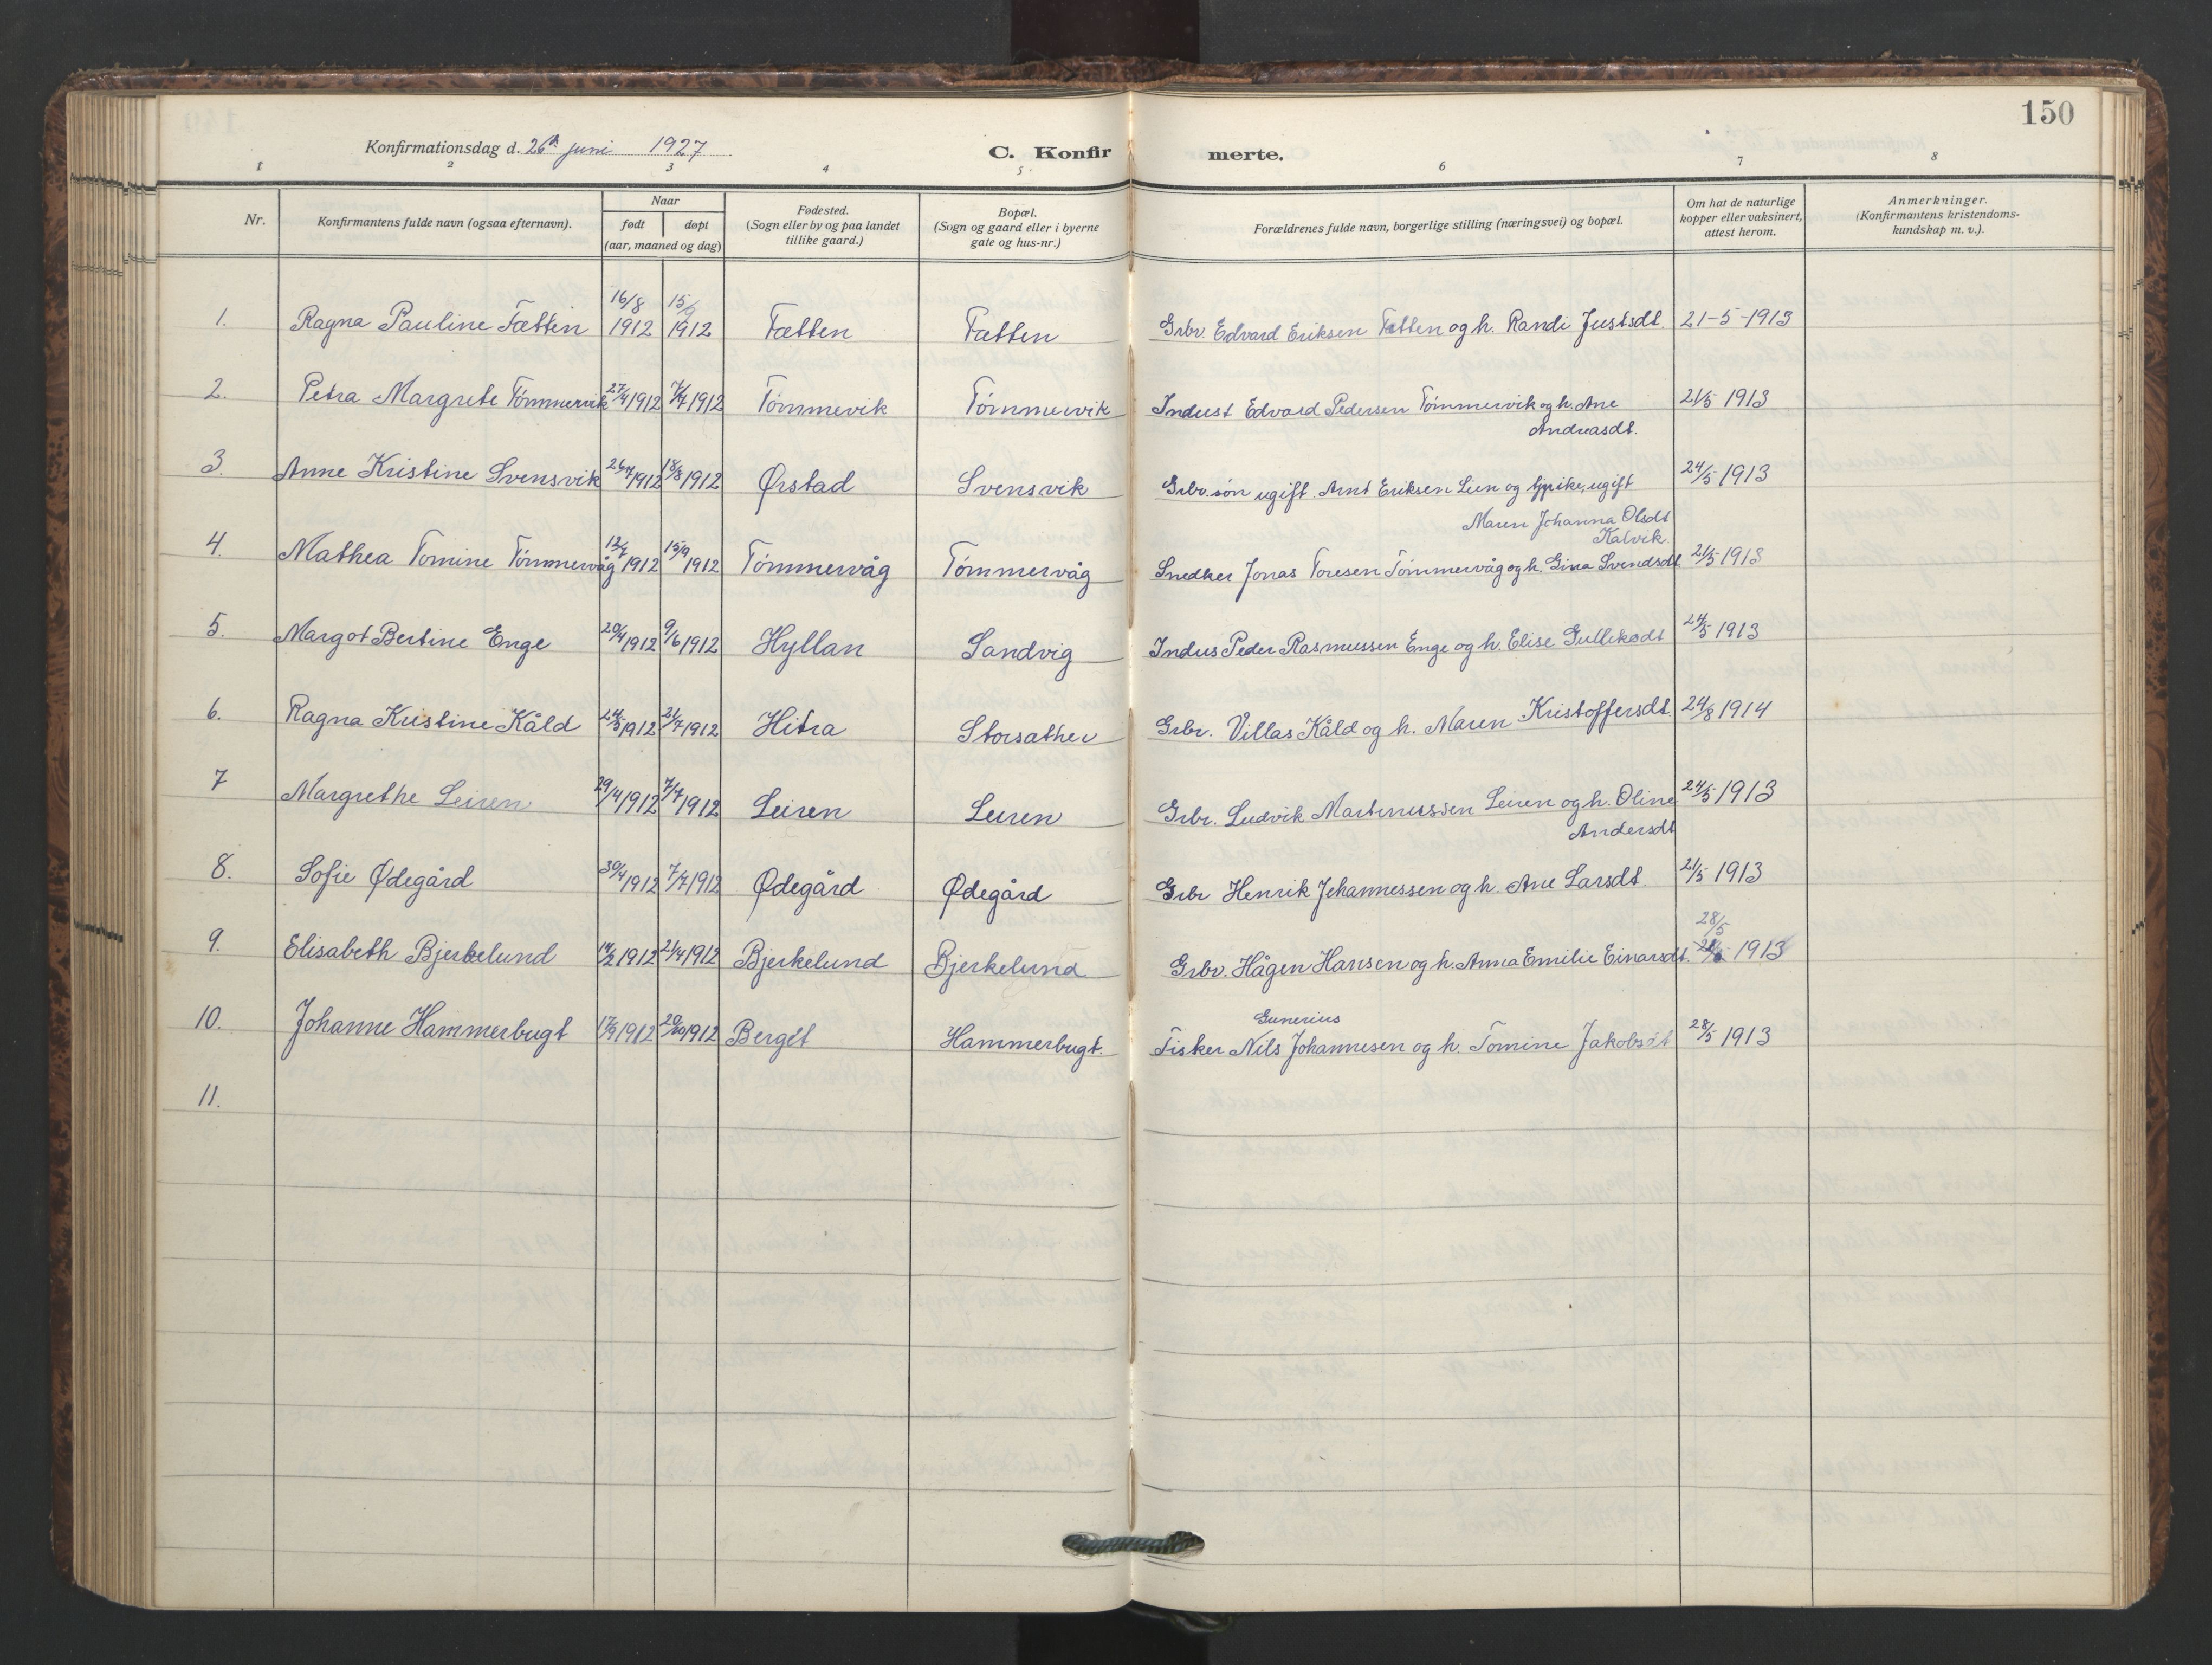 150
Konfirmationsdag d. 26de juni 1927
C. Konfirmerte.
1 2 3 4 5 6 7 8
Nr. | Konfirmantens fulde navn (ogsaa efternavn). | Naar født | døpt (aar, maaned og dag) | Fødested. (Sogn eller by og paa landet tillike gaard.) | Bopæl. (Sogn og gaard eller i byerne gate og hus-nr.) | Forældrenes fulde navn, borgerlige stilling (næringsvei) og bopæl. | Om hat de naturlige kopper eller vaksinert, attest herom. | Anmerkninger. (Konfirmantens kristendomskundskap m. v.).
1. Ragna Pauline Fætten 16/8 1912 15/9 1912 Fætten Fætten Grbr. Edvard Eriksen Fætten og h. Randi Justsdt. 21-5-1913
2. Petra Margrete Tömmervik 27/4 1912 7/7 1912 Tömmevik Tömmervik Indust Edvard Pedersen Tömmervik og h. Ane
Andreasdt. 21/5 1913
3. Anne Kristine Svensvik 26/7 1912 18/8 1912 Ørstad Svensvik Grbr. søn ugift. Arnt Eriksen Lien og ugift
Maren Johanna Olsdt
Kalvik. 24/5 1913
4. Mathea Tomine Tömmervåg 12/7 1912 15/9 1912 Tömmervåg Tömmervåg Snedker Jonas Toresen Tömmervåg og h. Gina Svendsdt. 21/5 1913
5. Margot Bertine Enge 20/4 1912 9/6 1912 Hyllan Sandvig Indus Peder Rasmussen Enge og h. Elise Gulleksdt 24/5 1913
6. Ragna Kristine Kåld 24/5 1912 21/7 1912 Hitra Storsather Grbr. Villas Kåld og h. Maren Kristoffersdt. 24/8 1914
7 Margrethe Leiren 29/4 1912 7/7 1912 Leiren Leiren Grbr. Ludvik Martinussen Leiren og h. Oline
Andersdt 24/5 1913
8. Sofie Ødegård 30/4 1912 7/7 1912 Ødegård Ødegård Grbr Henrik Johannessen og h. Ane Larsdt. 21/5 1913
28/5
9. Elisabeth Bjerkelund 14/2 1912 21/4 1912 Bjerkelund Bjerkelund Grbr. Hågen Hansen og h. Anna Emilie Einarsdt. 1913
Gunerius
10. Johanne Hammerbugt 17/9 1912 20/10 1912 Berget Hammerbugt. Fisker Nils Johannesen og h. Tomine Jakobsdt 28/5 1913
11.